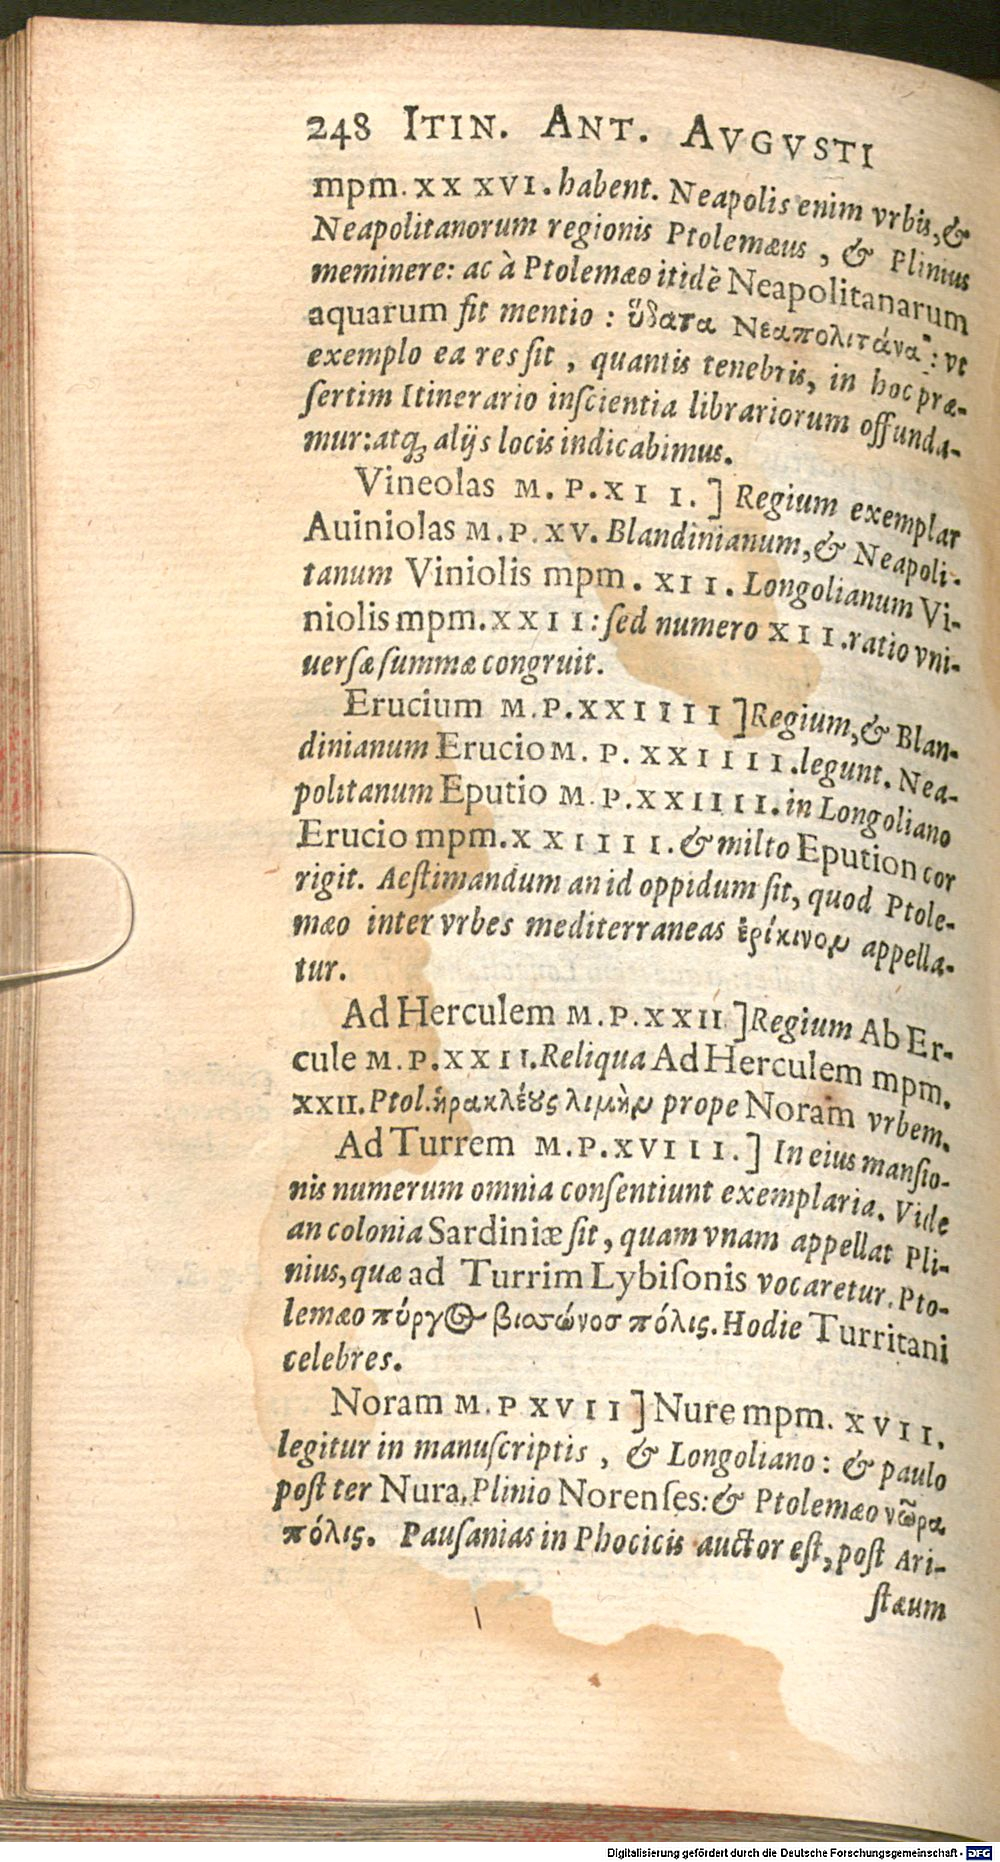 248 ITIN. ANT. AVGVSTI
mpm. XX XVI. habent. Neapolis enim vrbis, &
Neapolitanorum regionis Ptolemæus, & Plinius
meminere: ac à Ptolemæo itidẽ Neapolitanarum
aquarum fit mentio: ὕδατα Νεαπολιτάνα: vt
exemplo ea res sit, quantis tenebris, in hoc præ-
sertim Itinerario inscientia librariorum offunda-
mur: atq; alijs locis indicabimus.
Vineolas M. P. XII.] Regium exemplar
Auiniolas M. P. XV. Blandinianum, & Neapoli-
tanum Viniolis mpm. XII. Longolianum Vi-
niolis mpm. XXII: sed numero XII. ratio vni-
uersæ summæ congruit.
Erucium M. P. XXIIII] Regium, & Blan-
dinianum Erucio M. P. XXIIII. legunt. Nea-
politanum Eputio M. P. XXIIII. in Longoliano
Erucio mpm. XXIIII. & milto Epution cor
rigit. Aestimandum an id oppidum sit, quod Ptole-
mæo inter vrbes mediterraneas ἐρίκινον appella-
tur.
Ad Herculem M. P. XXII.] Regium Ab Er-
cule M. P. XXII. Reliqua Ad Herculem mpm.
XXII. Ptol. ἡρακλέους λιμὴν prope Noram vrbem.
Ad Turrem M. P. XVIII.] In eius mansio-
nis numerum omnia consentiunt exemplaria. Vide
an colonia Sardiniæ sit, quam vnam appellat Pli-
nius, quæ ad Turrim Lybisonis vocaretur. Pto-
lemæo πύργος βισσώνοσ πόλις. Hodie Turritani
celebres.
Noram M. P XVII] Nure mpm. XVII.
legitur in manuscriptis, & Longoliano: & paulo
post ter Nura. Plinio Norenses: & Ptolemæo νῶρα
πόλις. Pausanias in Phocicis auctor est, post Ari-
stæum
Digitalisierung gefördert durch die Deutsche Forschungsgemeinschaft - DFG